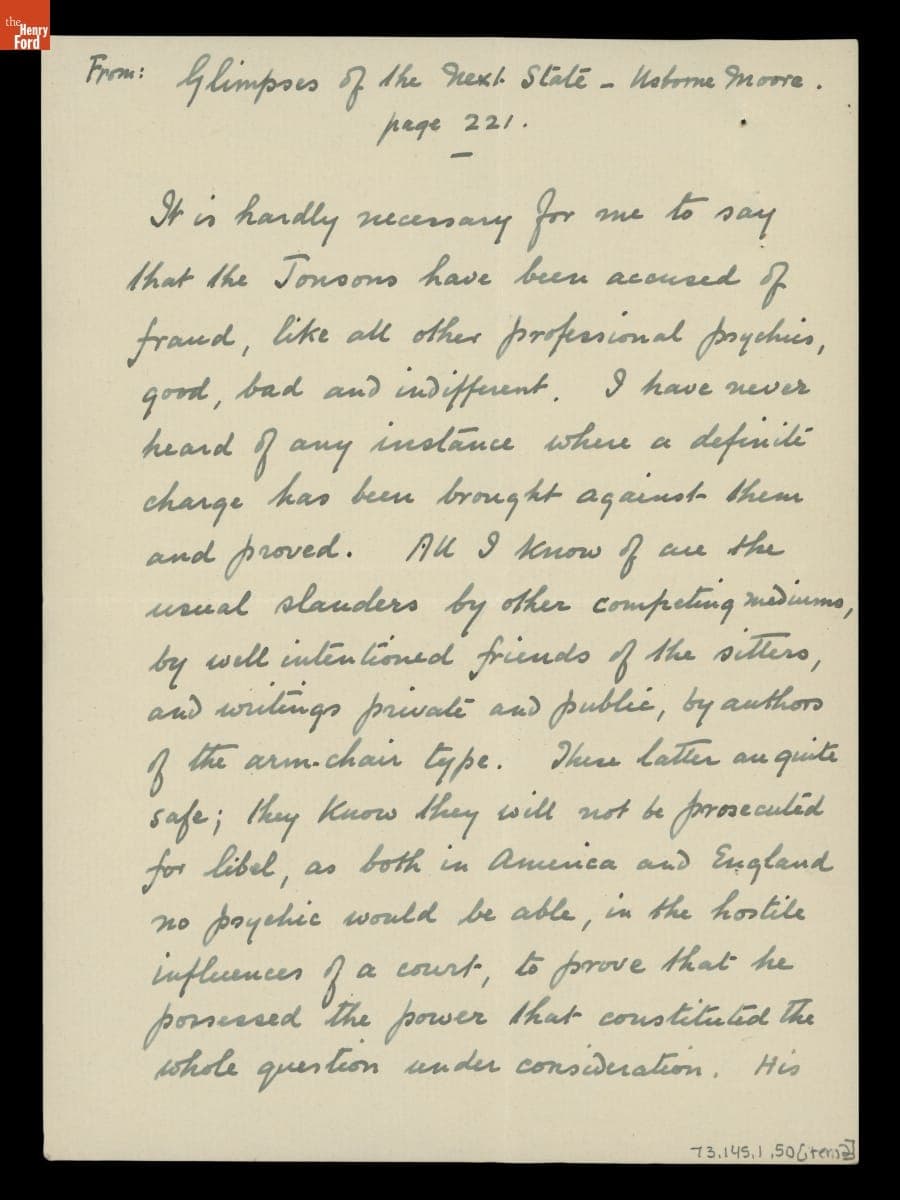 the
Henry
Ford
From: Glimpses of the Next State - Usborne Moore.
page 221.
It is hardly necessary for me to say
that the Jonsons have been accused of
fraud, like all other professional psychics,
good, bad and indifferent. I have never
heard of any instance where a definite
charge has been brought against them
and proved. All I know of are the
usual slanders by other competing mediums,
by well intentioned friends of the sitters,
and writings private and public, by authors
of the arm-chair type. These latter are quite
safe; they know they will not be prosecuted
for libel, as both in America and England
no psychic would be able, in the hostile
influences of a court, to prove that he
possessed the power that constituted the
whole question under consideration. His
73.145.1.50